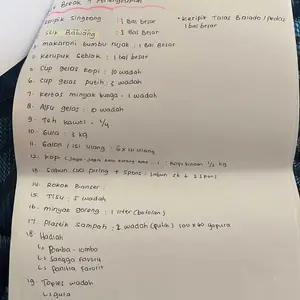 Break
1. Keripik Singkong : 1 Bal besar
• Keripik Talas Balado / pedas
1 bal besar
2. Stik Bawang : 1 Bal Besar
3. makaroni bumbu rujak : 1 Bal Besar
4. Kerupuk Seblak : 1 bal besar
5. Cup gelas kopi : 10 wadah
6. Cup gelas Putih : 2 wadah
7. Kertas minyak bunga - 1 wadah
8. gelas : 10 wadah
9. Teh - 1/4
10. Gula : 3 kg
11. Galon / isi ulang : 6 x isi ulang
12. Kopi : 1/2 kg
13. Sabun cuci piring + Spons : Sabun
14. Rokok
15. Tisu : 5 wadah
16. minyak goreng : 1 liter (botolan)
17. Plastik Sampah : 2 wadah 100 x 60
18. Hadiah
↳ Lomba - lomba
↳ favorit
↳ Panitia favorit
19. Toples wadah
↳ gula